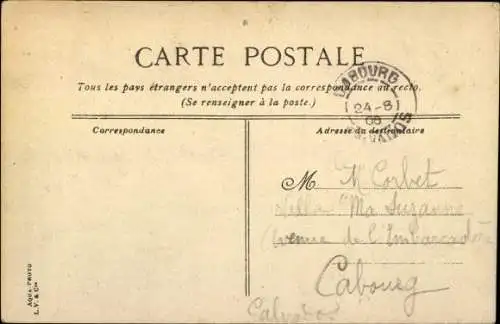 CARTE POSTALE
Tous les pays étrangers n'acceptent pas la correspondance au recto.
(Se renseigner à la poste.)
Correspondance
Adresse du destinataire
24-8
08
M M Corbet
Villa "Ma Suzanne
Avenue de l'Embarcadère
Cabourg
Calvados
AQUA-PHOTO
L.V. & Cie